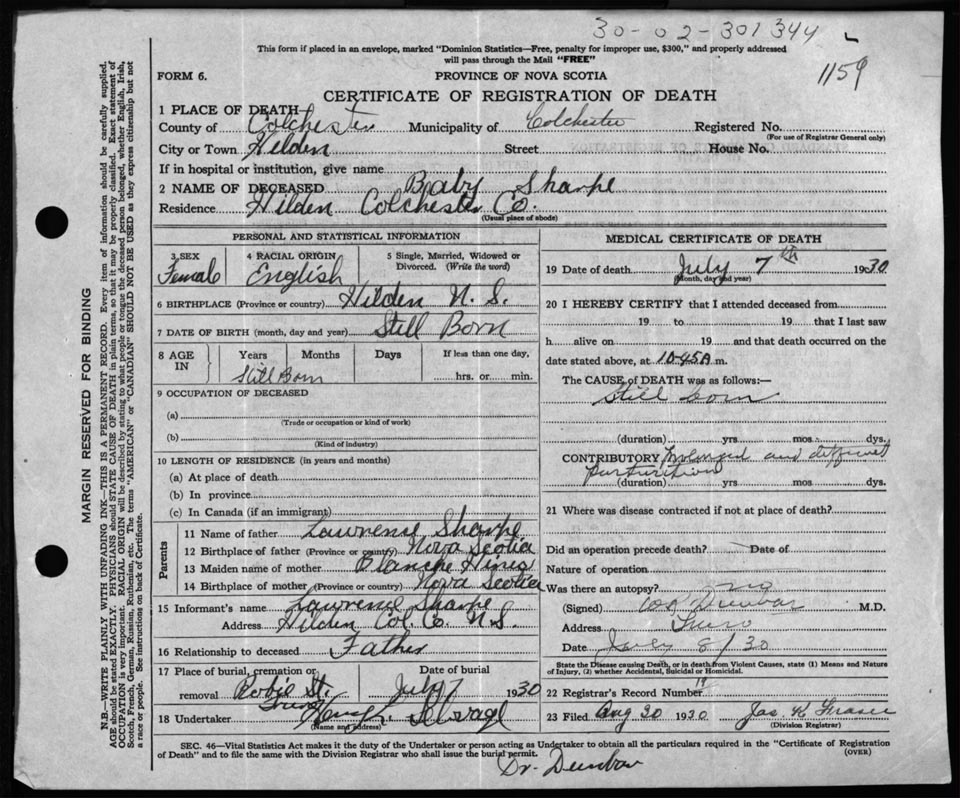 30-02-301344
This form if placed in an envelope, marked "Dominion Statistics—Free, penalty for improper use, $300," and properly addressed
will pass through the Mail "FREE"
1159
FORM 6. PROVINCE OF NOVA SCOTIA
CERTIFICATE OF REGISTRATION OF DEATH
1 PLACE OF DEATH
County of Colchester Municipality of Colchester Registered No.
(For use of Registrar General only)
City or Town Hilden Street House No.
If in hospital or institution, give name
2 NAME OF DECEASED Baby Sharpe
Residence Hilden Colchester Co.
(Usual place of abode)
PERSONAL AND STATISTICAL INFORMATION
3 SEX Female
4 RACIAL ORIGIN English
5 Single, Married, Widowed or Divorced. (Write the word)
6 BIRTHPLACE (Province or country) Hilden N. S.
7 DATE OF BIRTH (month, day and year) Still Born
8 AGE IN Years Months Days If less than one day,
Still Born hrs. or min.
9 OCCUPATION OF DECEASED
(a)
(Trade or occupation or kind of work)
(b)
(Kind of industry)
10 LENGTH OF RESIDENCE (in years and months)
(a) At place of death
(b) In province
(c) In Canada (if an immigrant)
Parents
11 Name of father Lawrence Sharpe
12 Birthplace of father (Province or country) Nova Scotia
13 Maiden name of mother Blanche Hines
14 Birthplace of mother (Province or country) Nova Scotia
15 Informant's name Lawrence Sharpe
Address Hilden Col. Co. N.S.
16 Relationship to deceased Father
17 Place of burial, cremation or Date of burial
removal Robie St. July 7 1930
Truro
18 Undertaker
(Name and address)
MEDICAL CERTIFICATE OF DEATH
19 Date of death July 7th 1930
(Month, day and year)
20 I HEREBY CERTIFY that I attended deceased from
19 to 19 that I last saw
h alive on 19 and that death occurred on the
date stated above, at 10.45 A m.
The CAUSE of DEATH was as follows:—
Still born
(duration) yrs. mos. dys.
CONTRIBUTORY Prolonged and difficult
parturition
(duration) yrs. mos. dys.
21 Where was disease contracted if not at place of death?
Did an operation precede death? Date of
Nature of operation
Was there an autopsy? no
(Signed) Dunbar M.D.
Address Truro
Date July 8/30
State the Disease causing Death, or in death from Violent Causes, state (1) Means and Nature
of Injury, and (2) whether Accidental, Suicidal or Homicidal.
22 Registrar's Record Number 19
23 Filed Aug 30 1930 Jas H Fraser
(Division Registrar)
SEC. 46—Vital Statistics Act makes it the duty of the Undertaker or person acting as Undertaker to obtain all the particulars required in the "Certificate of Registration
of Death" and to file the same with the Division Registrar who shall issue the burial permit. (OVER)
Dr. Dunbar
MARGIN RESERVED FOR BINDING
N.B.—WRITE PLAINLY WITH UNFADING INK—THIS IS A PERMANENT RECORD. Every item of information should be carefully supplied.
AGE should be stated EXACTLY. PHYSICIANS should STATE CAUSE OF DEATH in plain terms, that it may be properly classified. Exact statement of
OCCUPATION is very important. RACIAL ORIGIN will be described by stating to what people or tongue the deceased person belonged, whether English, Irish,
Scotch, French, German, Russian, Ruthenian, etc. The terms "AMERICAN" or "CANADIAN" SHOULD NOT BE USED as they express citizenship but not
a race or people. See instructions on back of Certificate.